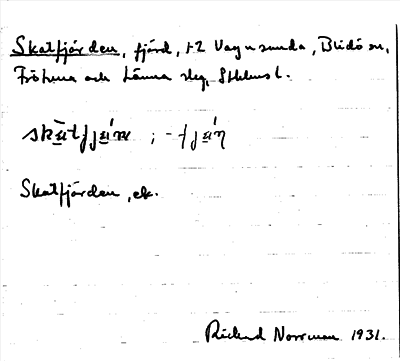 Skatfjärden, fjärd, t Vagnsunda, Blidö sn,
Frötuna och Länna skg, Sthlms l.
skatfjän ; -fjäŋ
Skatfjärden, ek.
Rickard Norrman 1931.